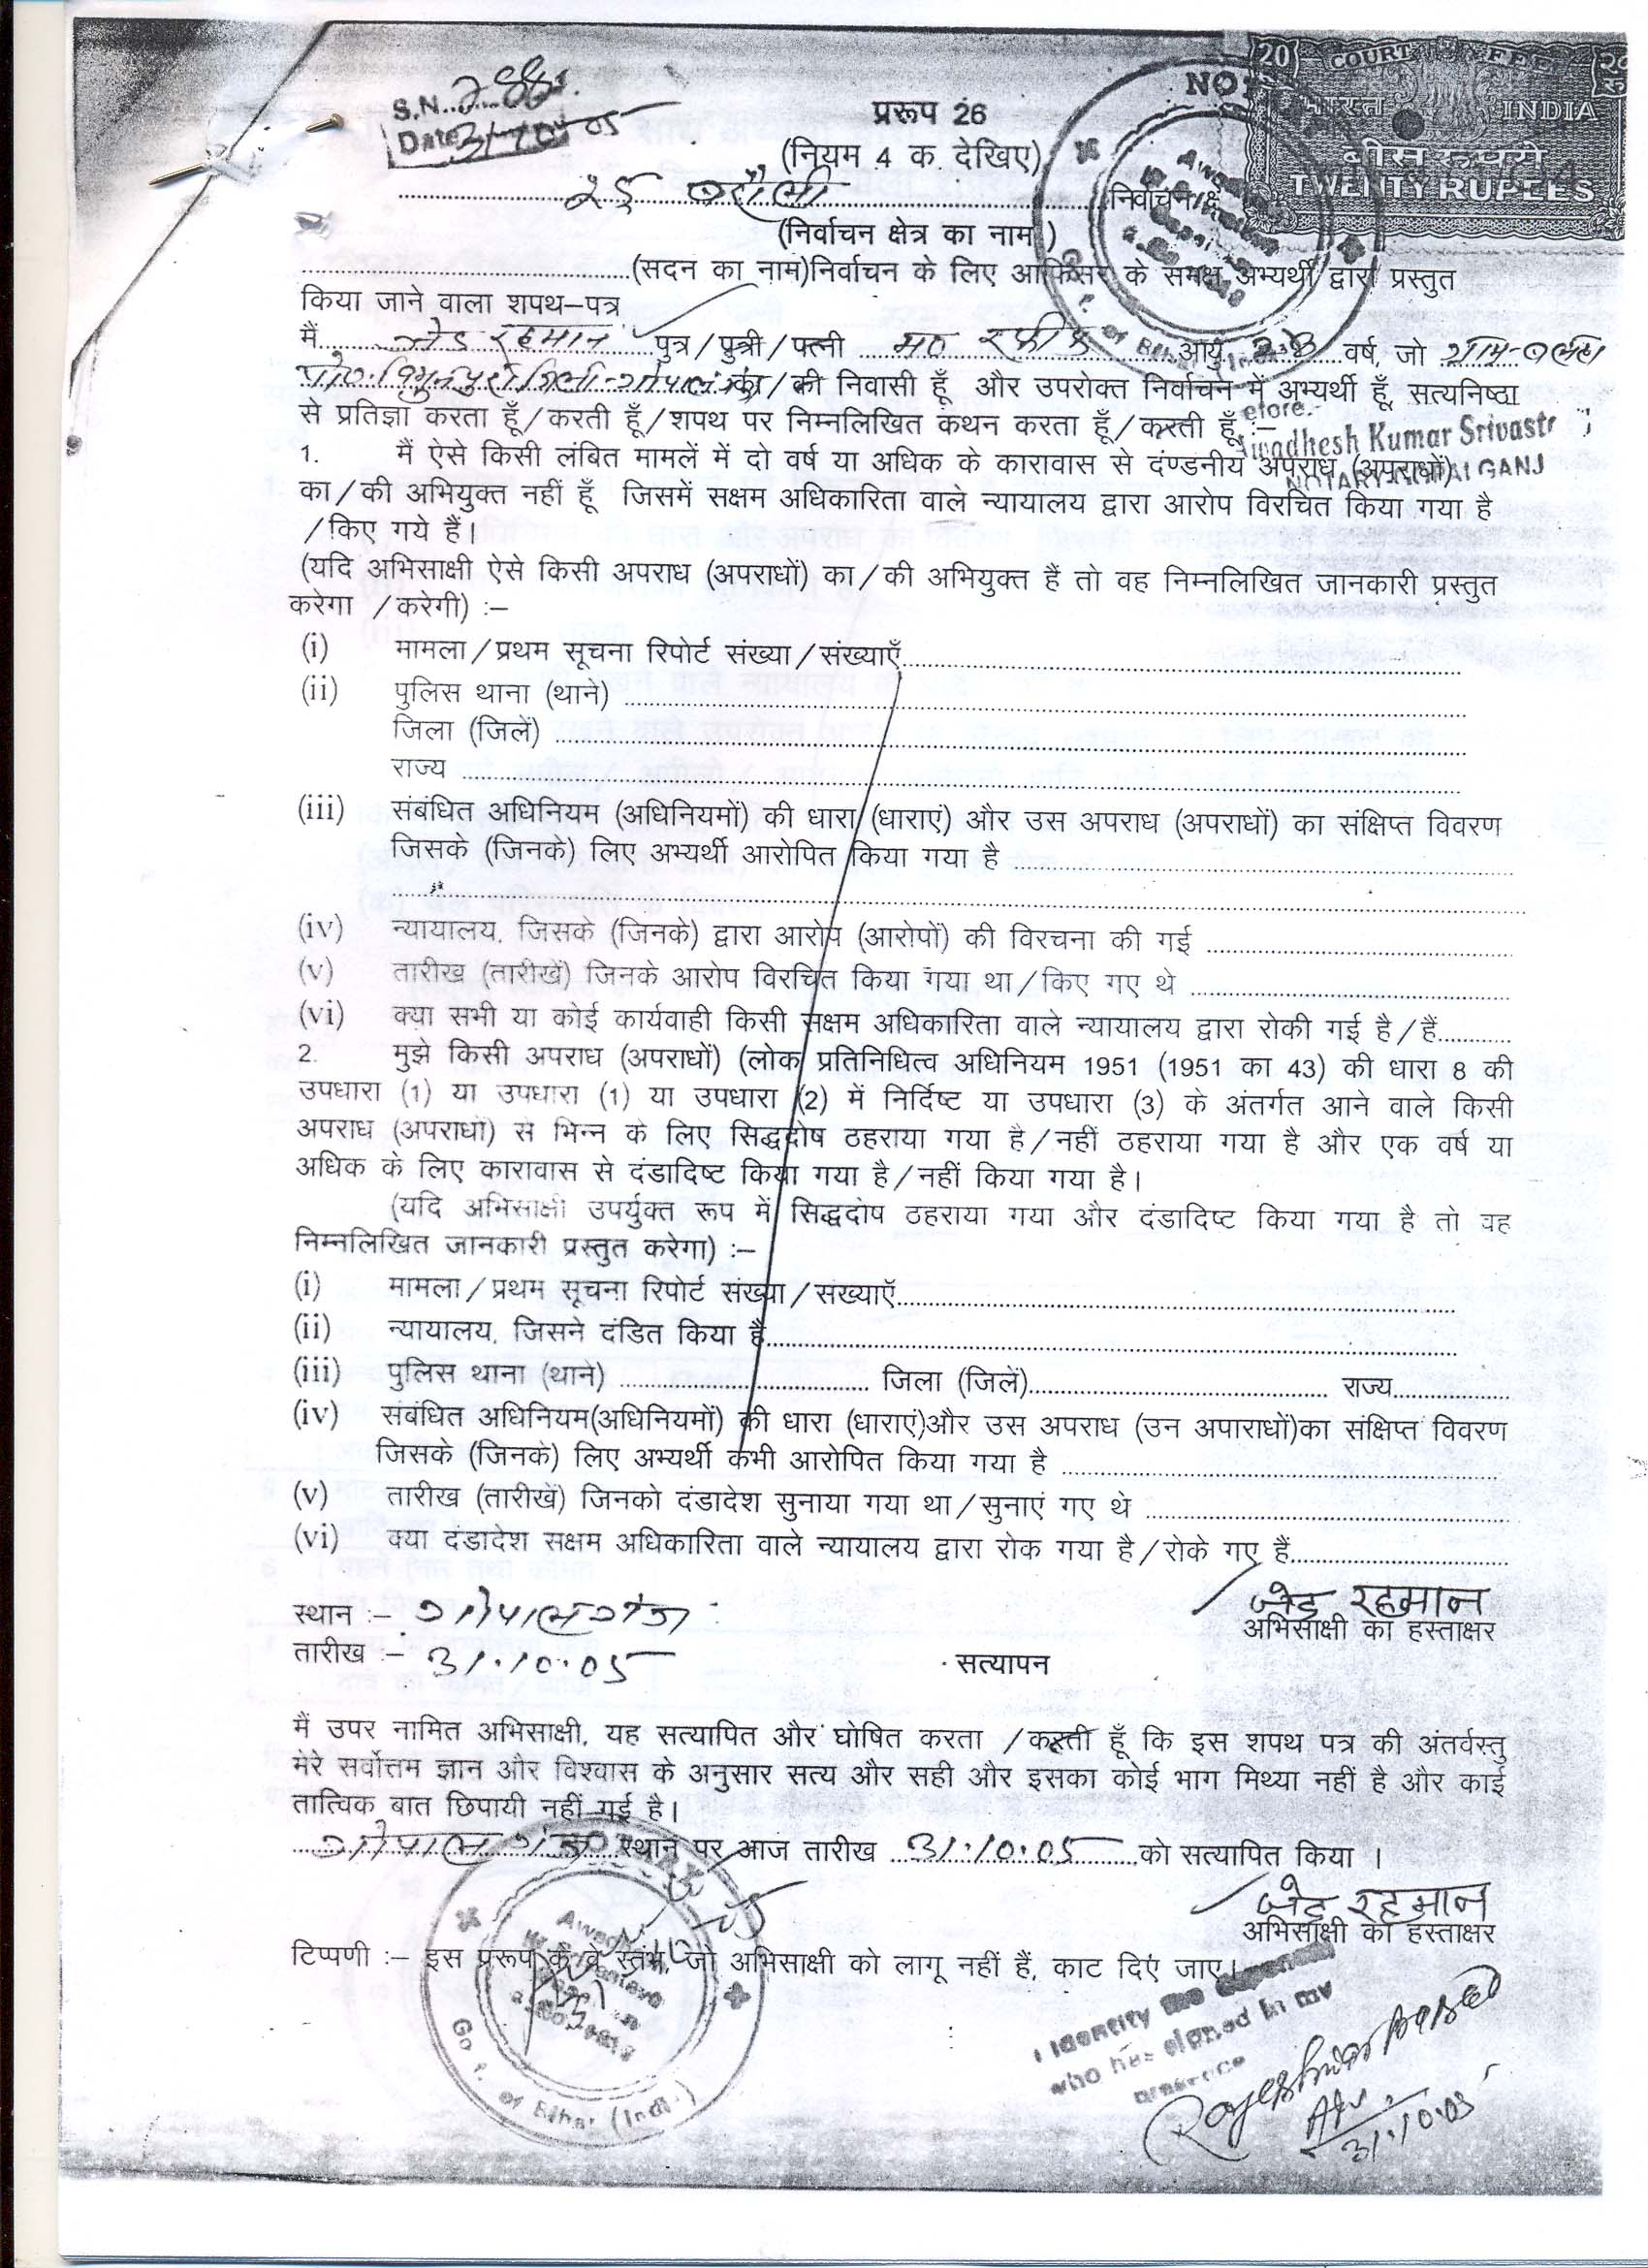 S.N.
Date 31-10-05
COURT FEE
20
भारत INDIA
बीस रूपये
TWENTY RUPEES
प्ररूप 26
(नियम 4 क. देखिए)
निर्वाचन क्षे
(निर्वाचन क्षेत्र का नाम )
(सदन का नाम)निर्वाचन के लिए आफिसर के समक्ष अभ्यर्थी द्वारा प्रस्तुत
किया जाने वाला शपथ–पत्र
मैं जेड रहमान पुत्र/पुत्री/पत्नी मो० रफीक आयु वर्ष, जो ग्राम-
का/की निवासी हूँ और उपरोक्त निर्वाचन में अभ्यर्थी हूँ, सत्यनिष्ठा
से प्रतिज्ञा करता हूँ/करती हूँ/शपथ पर निम्नलिखित कथन करता हूँ/करती हूँ :–
efore.-
Awadhesh Kumar Srivastr
NOTARY GOPALGANJ
1. मैं ऐसे किसी लंबित मामलें में दो वर्ष या अधिक के कारावास से दंण्डनीय अपराध (अपराधों)
का/की अभियुक्त नहीं हूँ जिसमें सक्षम अधिकारिता वाले न्यायालय द्वारा आरोप विरचित किया गया है
/किए गये हैं।
(यदि अभिसाक्षी ऐसे किसी अपराध (अपराधों) का/की अभियुक्त हैं तो वह निम्नलिखित जानकारी प्रस्तुत
करेगा /करेगी) :–
(i) मामला/प्रथम सूचना रिपोर्ट संख्या/संख्याएँ
(ii) पुलिस थाना (थाने)
जिला (जिलें)
राज्य
(iii) संबंधित अधिनियम (अधिनियमों) की धारा (धाराएं) और उस अपराध (अपराधों) का संक्षिप्त विवरण
जिसके (जिनके) लिए अभ्यर्थी आरोपित किया गया है
(iv) न्यायालय, जिसके (जिनके) द्वारा आरोप (आरोपों) की विरचना की गई
(v) तारीख (तारीखें) जिनके आरोप विरचित किया गया था/किए गए थे
(vi) क्या सभी या कोई कार्यवाही किसी सक्षम अधिकारिता वाले न्यायालय द्वारा रोकी गई है/हैं
2. मुझे किसी अपराध (अपराधों) (लोक प्रतिनिधित्व अधिनियम 1951 (1951 का 43) की धारा 8 की
उपधारा (1) या उपधारा (1) या उपधारा (2) में निर्दिष्ट या उपधारा (3) के अंतर्गत आने वाले किसी
अपराध (अपराधों) से भिन्न के लिए सिद्धदोष ठहराया गया है/नहीं ठहराया गया है और एक वर्ष या
अधिक के लिए कारावास से दंडादिष्ट किया गया है/नहीं किया गया है।
(यदि अभिसाक्षी उपर्युक्त रूप में सिद्धदोष ठहराया गया और दंडादिष्ट किया गया है तो वह
निम्नलिखित जानकारी प्रस्तुत करेगा) :–
(i) मामला/प्रथम सूचना रिपोर्ट संख्या/संख्याएँ
(ii) न्यायालय, जिसने दंडित किया है
(iii) पुलिस थाना (थाने) जिला (जिलें) राज्य
(iv) संबंधित अधिनियम(अधिनियमों) की धारा (धाराएं)और उस अपराध (उन अपाराधों)का संक्षिप्त विवरण
जिसके (जिनके) लिए अभ्यर्थी कभी आरोपित किया गया है
(v) तारीख (तारीखें) जिनको दंडादेश सुनाया गया था/सुनाएं गए थे
(vi) क्या दंडादेश सक्षम अधिकारिता वाले न्यायालय द्वारा रोक गया है/रोके गए हैं
स्थान :– गोपालगंज
जेड रहमान
अभिसाक्षी का हस्ताक्षर
तारीख :– 31.10.05
सत्यापन
मैं उपर नामित अभिसाक्षी, यह सत्यापित और घोषित करता /करती हूँ कि इस शपथ पत्र की अंतर्वस्तु
मेरे सर्वोत्तम ज्ञान और विश्वास के अनुसार सत्य और सही और इसका कोई भाग मिथ्या नहीं है और काई
तात्विक बात छिपायी नहीं गई है।
गोपालगंज स्थान पर आज तारीख 31.10.05 को सत्यापित किया ।
जेड रहमान
अभिसाक्षी का हस्ताक्षर
टिप्पणी :– इस प्ररूप के वे स्तंभ, जो अभिसाक्षी को लागू नहीं हैं, काट दिएं जाए।
I identity the deponent
who has signed in my
presence
Govt. of Bihar (India)
31.10.05